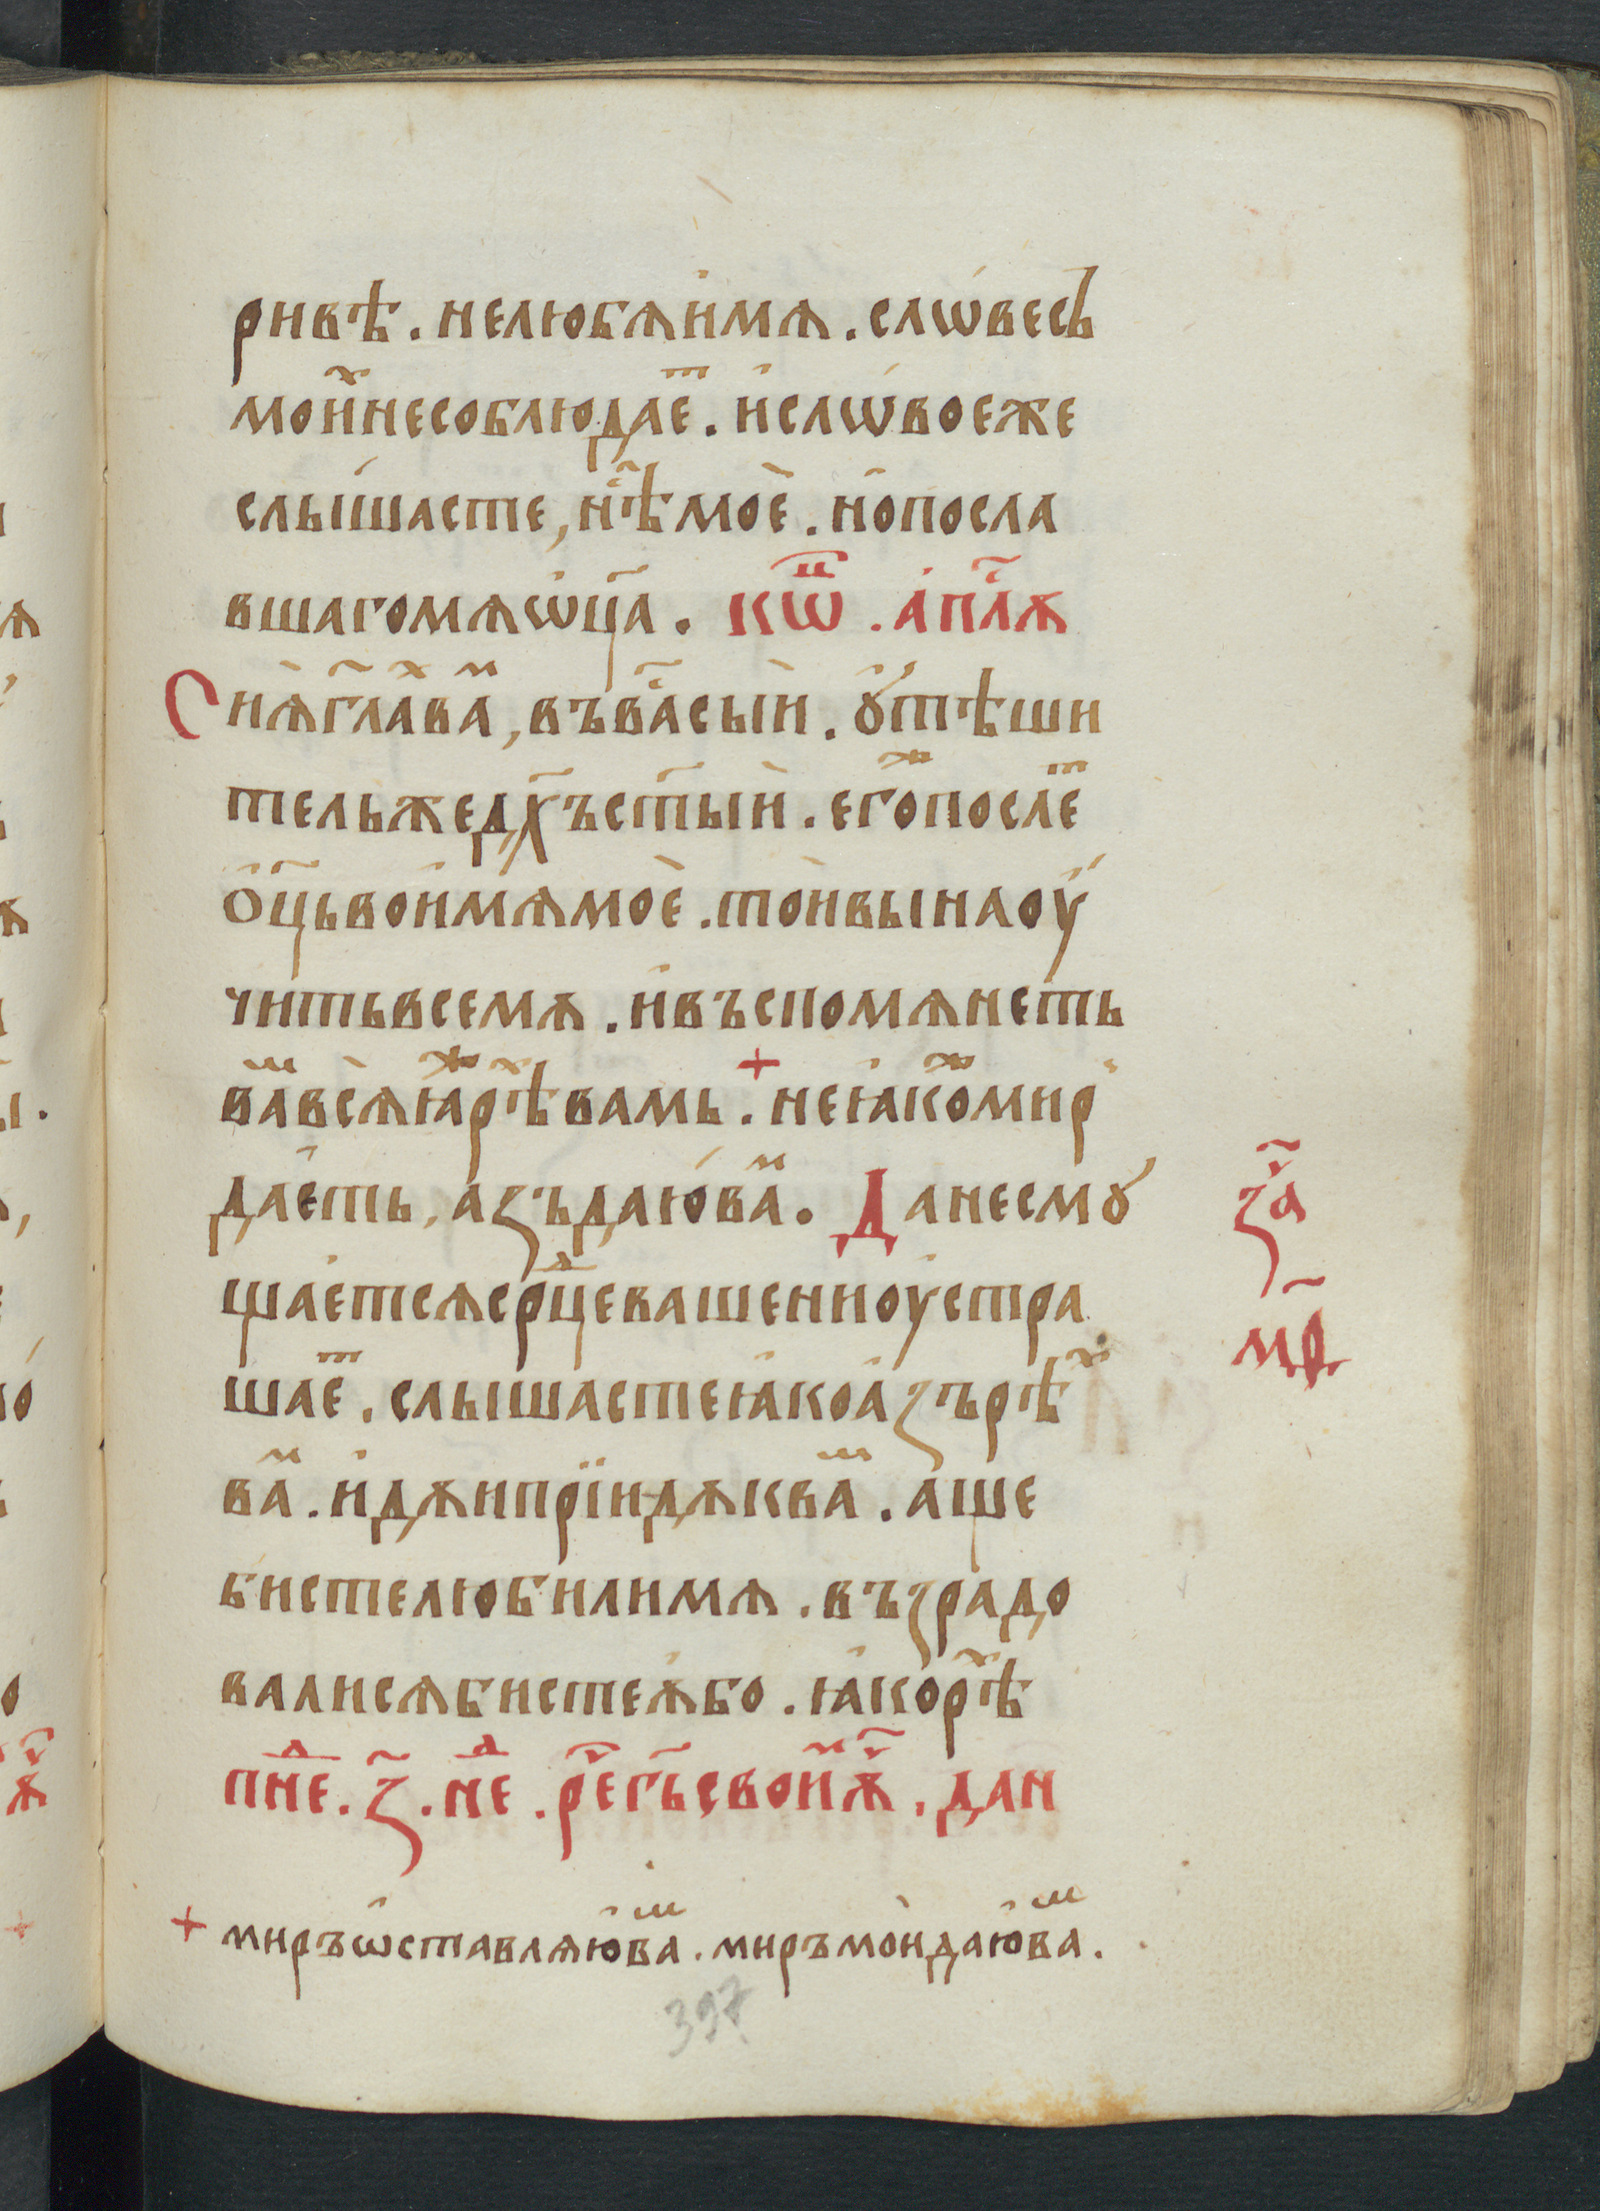 рнвѣ . нелюбѧимѧ . слѡвесъ
моиⷯнесоблюдаеⷮ . ислѡвоеже
слышасте, нⷭ҇ѣмое . нопосла
вшагомѧѡц҃а . кѡⷩ҇ . апⷭ҇лѧ
Сиѧгл҃аⷯваⷨ , въваⷭ҇сыи . ꙋтѣши
тельжедх҃ъст҃ыи . егоⷤпослеⷮ
ѻц҃ьвоимѧмое . тоивынаоу
читьвсемѧ . ивъспомѧнеть
ваⷲвсѧꙗⷤрⷯѣвамь . + неꙗкоⷤмир
даеть , аꙁъдаюваⷨ . Данесмꙋ
щаетсѧсрⷣцевашениоустра
шаеⷮ . слышастеꙗкоаꙁърѣⷯ
ваⷨ . идѧиприидѧкваⷨ . аще
бистелюбилимѧ . въꙁрадо
валисѧбистеѧбо . ꙗкорⷯѣ
пнⷣе . ꙁ҃ . нⷣе . рⷱ҇егь҃своиⷨⷱ҇ѧ . дан
+ миръѡставлѧюваⷨ . миръмоидаюваⷨ .
ꙁаⷱ҇
мд҃
397